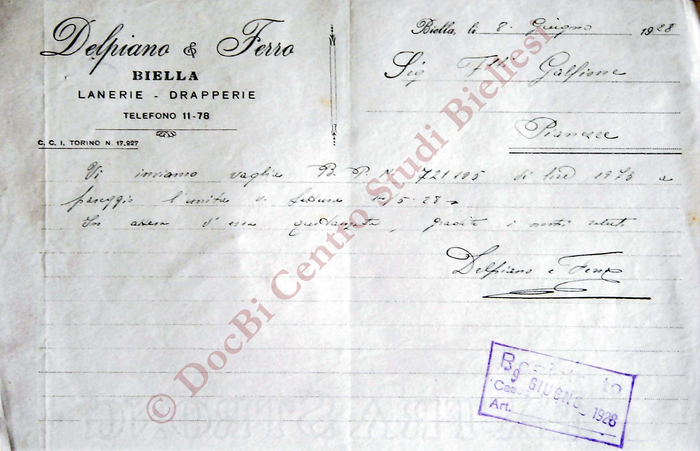 Delpiano & Ferro
BIELLA
LANERIE - DRAPPERIE
TELEFONO 11-78
C. C. I. TORINO N. 17.927
Biella, li 8 Giugno 1928
Sig Flli Galfione
Pianceri
Vi inviamo vaglia B. P. N. 721105 di lire 1973 a
pareggio v. fattura 12/5-28
In attesa d'una quietanzata, gradite i nostri saluti
Delpiano e Ferro
9 GIUGNO 1928
Art.
© DocBi Centro Studi Biellesi